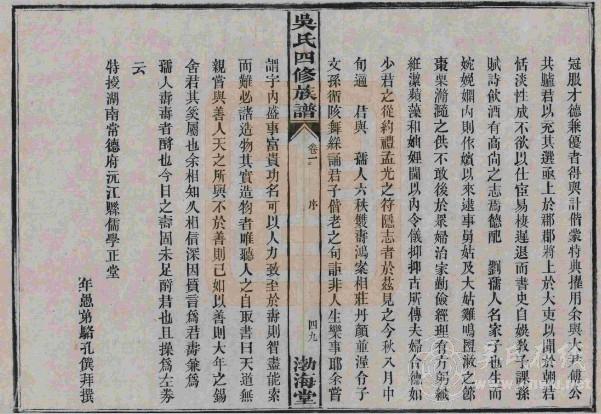 冠服才德兼優者得與計偕蒙特典擢用余與大
共臚君以充其選亟上於郡郡將上於大吏以聞於朝君
恬淡性成不欲以仕宦易棲遲退而書史自娛教子課孫
賦詩飲酒有高尚之志焉德配 劉孺人名家子也生而
婉娩嫻內則依嬪以來逮事舅姑及大姑雞鳴盥漱之節
棗栗瀡滫之供不敢後於眾婦治家勤儉經理有方躬織
紝潔蘋藻和娣姒閫以內令儀抑抑古所傳夫婦合德如
少君之從約禮孟光之符隱志者於茲見之今秋八月中
旬適 君與 孺人六秩雙壽鴻案相莊丹顏並渥令子
文孫循陔舞綵誦君子偕老之句詎非人生樂事耶余嘗
吳氏四修族譜
卷一
序
四九
渤海堂
謂宇內盛事富貴功名可以人力致至於壽則智盡能索
而難必諸造物其實造物者唯聽人之自取書曰天道無
親嘗與善人天之所與不於善則已如以善則大年之錫
舍君其奚屬也余相知久相信深因質言為君壽兼為
孺人壽壽者酬也今日之壽固未足酬君也且操為左券
云
特授湖南常德府沅江縣儒學正堂
年愚弟駱孔僎拜撰